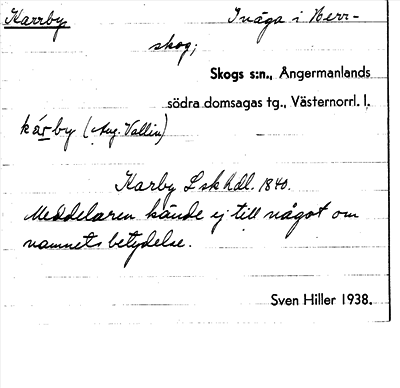 Karrby Inäga i Herr-
skog;
Skogs s:n., Ångermanlands
södra domsagas tg., Västernorrl. l.
kár̲by (Aug. Vallin)
Karby L sk hdl. 1840.
Meddelaren kände ej till något om
namnets betydelse.
Sven Hiller 1938.